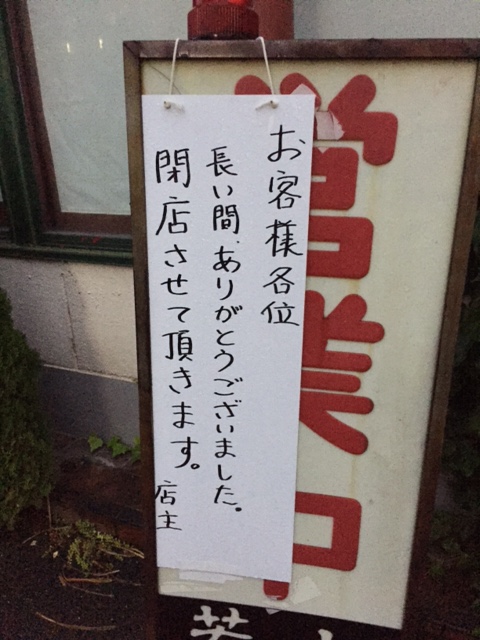 お客様各位
長い間、ありがとうございました。
閉店させて頂きます。
店主
営業中